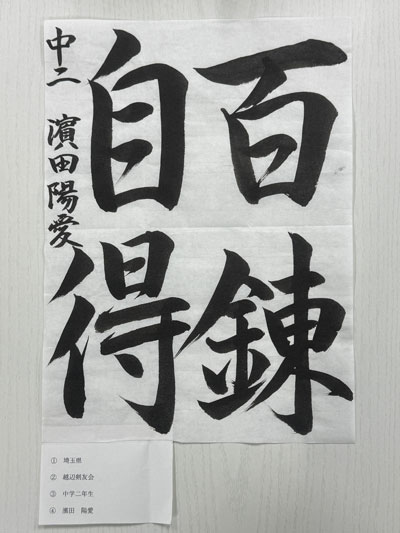 百錬
自得
中二 濵田陽愛
① 埼玉県
② 越辺剣友会
③ 中学二年生
④ 濵田 陽愛